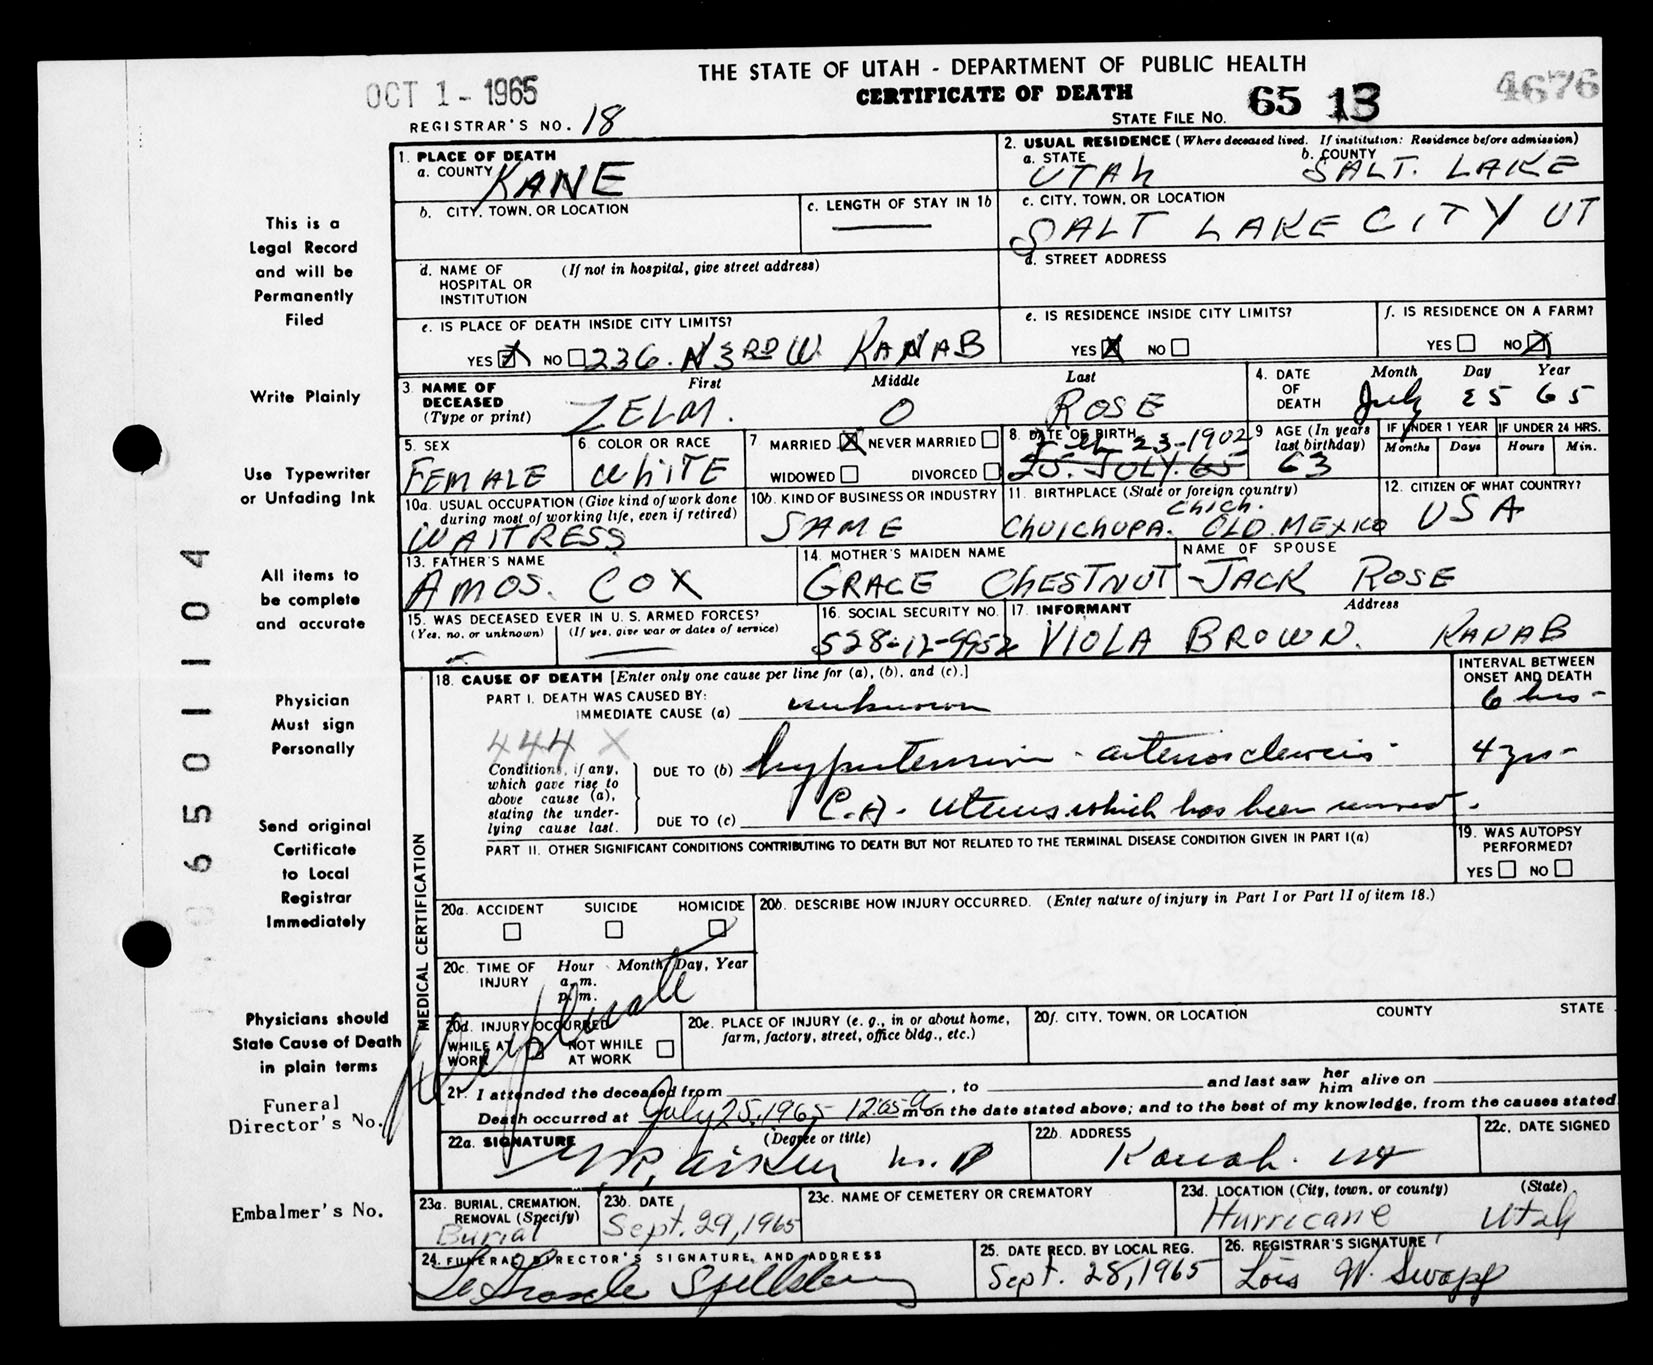 THE STATE OF UTAH - DEPARTMENT OF PUBLIC HEALTH
CERTIFICATE OF DEATH
OCT 1 - 1965
REGISTRAR'S NO. 18
STATE FILE NO. 65 13
4676
This is a
Legal Record
and will be
Permanently
Filed
Write Plainly
Use Typewriter
or Unfading Ink
All items to
be complete
and accurate
Physician
Must sign
Personally
Send original
Certificate
to Local
Registrar
Immediately
Physicians should
State Cause of Death
in plain terms
Funeral
Director's No.
Embalmer's No.
0 6501104
1. PLACE OF DEATH
a. COUNTY KANE
2. USUAL RESIDENCE (Where deceased lived. If institution: Residence before admission)
a. STATE UTAH
b. COUNTY SALT. LAKE
b. CITY, TOWN, OR LOCATION
c. LENGTH OF STAY IN 1b
c. CITY, TOWN, OR LOCATION
SALT LAKE CITY UT
d. NAME OF HOSPITAL OR INSTITUTION (If not in hospital, give street address)
d. STREET ADDRESS
e. IS PLACE OF DEATH INSIDE CITY LIMITS?
YES X NO 236. N 3RD W. KANAB
e. IS RESIDENCE INSIDE CITY LIMITS?
YES X NO
f. IS RESIDENCE ON A FARM?
YES NO X
3. NAME OF DECEASED (Type or print)
First Middle Last
ZELM. O ROSE
4. DATE OF DEATH
Month Day Year
July 25 65
5. SEX
FEMALE
6. COLOR OR RACE
WHITE
7 MARRIED X NEVER MARRIED
WIDOWED DIVORCED
8. DATE OF BIRTH
Feb 23-1902
25. JULY. 65
9 AGE (In years last birthday)
63
IF UNDER 1 YEAR
Months Days
IF UNDER 24 HRS.
Hours Min.
10a. USUAL OCCUPATION (Give kind of work done during most of working life, even if retired)
WAITRESS
10b. KIND OF BUSINESS OR INDUSTRY
SAME
11. BIRTHPLACE (State or foreign country)
Chich.
CHUICHUPA. OLD. MEXICO
12. CITIZEN OF WHAT COUNTRY?
USA
13. FATHER'S NAME
AMOS. COX
14. MOTHER'S MAIDEN NAME
GRACE CHESTNUT
NAME OF SPOUSE
JACK ROSE
15. WAS DECEASED EVER IN U.S. ARMED FORCES?
(Yes, no, or unknown) (If yes, give war or dates of service)
16. SOCIAL SECURITY NO.
528-12-9952
17. INFORMANT Address
VIOLA BROWN. KANAB
MEDICAL CERTIFICATION
18. CAUSE OF DEATH [Enter only one cause per line for (a), (b), and (c).]
INTERVAL BETWEEN ONSET AND DEATH
PART I. DEATH WAS CAUSED BY:
IMMEDIATE CAUSE (a) unknown 6 hrs -
444 X
Conditions, if any, which gave rise to above cause (a), stating the underlying cause last.
DUE TO (b) hypertension - arteriosclerosis - 4 yrs -
DUE TO (c) C.A. - Uterus which has been removed.
PART II. OTHER SIGNIFICANT CONDITIONS CONTRIBUTING TO DEATH BUT NOT RELATED TO THE TERMINAL DISEASE CONDITION GIVEN IN PART I(a)
19. WAS AUTOPSY PERFORMED?
YES NO
20a. ACCIDENT SUICIDE HOMICIDE
20b. DESCRIBE HOW INJURY OCCURRED. (Enter nature of injury in Part I or Part II of item 18.)
20c. TIME OF INJURY
Hour Month, Day, Year
a.m.
p.m.
Duplicate
20d. INJURY OCCURRED
WHILE AT WORK NOT WHILE AT WORK
20e. PLACE OF INJURY (e. g., in or about home, farm, factory, street, office bldg., etc.)
20f. CITY, TOWN, OR LOCATION COUNTY STATE
21. I attended the deceased from , to and last saw her him alive on
Death occurred at July 25, 1965 12:05 a m on the date stated above; and to the best of my knowledge, from the causes stated
22a. SIGNATURE (Degree or title)
Aiken M.D
22b. ADDRESS
Kanab. Ut
22c. DATE SIGNED
23a. BURIAL, CREMATION, REMOVAL (Specify)
Burial
23b. DATE
Sept. 29, 1965
23c. NAME OF CEMETERY OR CREMATORY
23d. LOCATION (City, town, or county) (State)
Hurricane Utah
24. FUNERAL DIRECTOR'S SIGNATURE, AND ADDRESS
Spilsbury
25. DATE RECD. BY LOCAL REG.
Sept. 28, 1965
26. REGISTRAR'S SIGNATURE
Lois W. Swapp